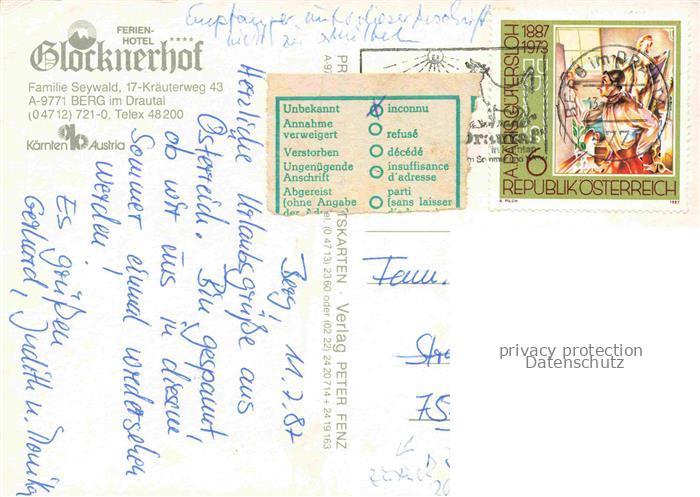 Empfänger unter dieser Anschrift
nicht zu
FERIEN-
HOTEL ****
Glocknerhof
Familie Seywald, 17-Kräuterweg 43
A-9771 BERG im Drautal
(0 47 12) 721-0, Telex 48 200
Kärnten Austria
Berg, 11.7.87
Herzliche Urlaubsgrüße aus
Österreich. Bin gespannt,
ob wir uns in diesem
Sommer einmal wiedersehen
werden!
Es grüßen
Gerhard, Judith u. Monika
Unbekannt inconnu
Annahme
verweigert refusé
Verstorben décédé
Ungenügende insuffisance
Anschrift d'adresse
Abgereist parti
(ohne Angabe (sans laisser
der
TSKARTEN - Verlag PETER FENZ
Tel. (0 47 13) 23 60 oder (02 22) 24 20 714 + 24 19 163
A. P. GÜTERSLOH 1887
1973
6
REPUBLIK ÖSTERREICH
A. PILCH 1987
BERG im DRAUTAL
Fam.
Str
75
privacy protection
Datenschutz